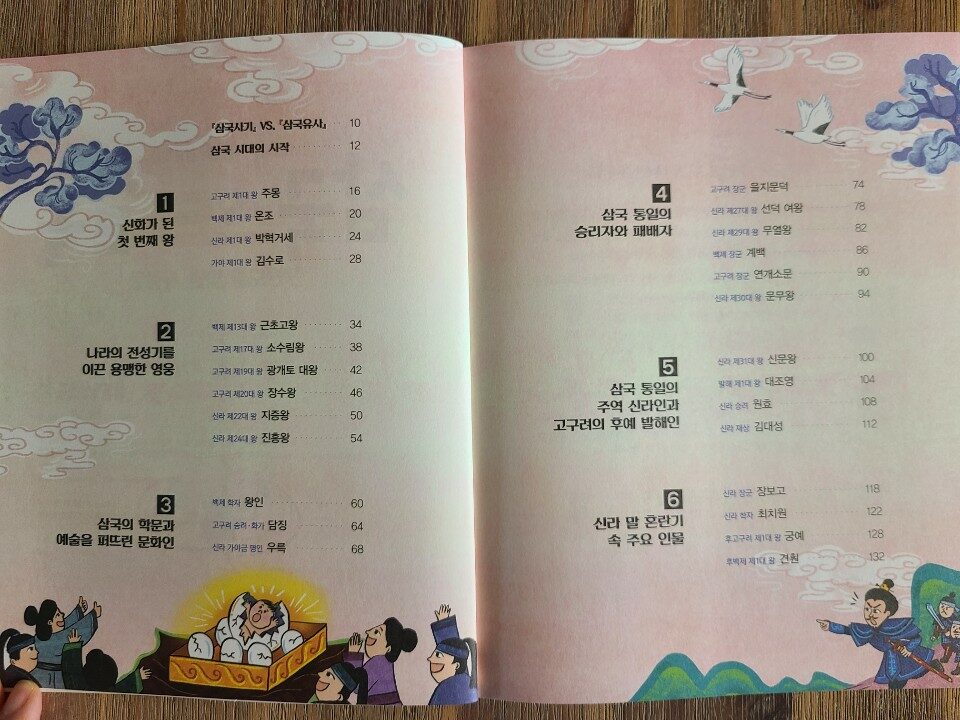 『삼국사기』 VS. 『삼국유사』 ····· 10
삼국 시대의 시작 ·········· 12
1
신화가 된
첫 번째 왕
고구려 제1대 왕 주몽 ·········· 16
백제 제1대 왕 온조 ·········· 20
신라 제1대 왕 박혁거세 ·········· 24
가야 제1대 왕 김수로 ·········· 28
2
나라의 전성기를
이끈 용맹한 영웅
백제 제13대 왕 근초고왕 ······· 34
고구려 제17대 왕 소수림왕 ······· 38
고구려 제19대 왕 광개토 대왕 ····· 42
고구려 제20대 왕 장수왕 ········ 46
신라 제22대 왕 지증왕 ········ 50
신라 제24대 왕 진흥왕 ········ 54
3
삼국의 학문과
예술을 퍼뜨린 문화인
백제 학자 왕인 ············ 60
고구려 승려·화가 담징 ········· 64
신라 가야금 명인 우륵 ········· 68
4
삼국 통일의
승리자와 패배자
고구려 장군 을지문덕 ·········· 74
신라 제27대 왕 선덕 여왕 ······· 78
신라 제29대 왕 무열왕 ········· 82
백제 장군 계백 ············ 86
고구려 장군 연개소문 ·········· 90
신라 제30대 왕 문무왕 ········· 94
5
삼국 통일의
주역 신라인과
고구려의 후예 발해인
신라 제31대 왕 신문왕 ········· 100
발해 제1대 왕 대조영 ········· 104
신라 승려 원효 ············ 108
신라 재상 김대성 ··········· 112
6
신라 말 혼란기
속 주요 인물
신라 장군 장보고 ··········· 118
신라 학자 최치원 ··········· 122
후고구려 제1대 왕 궁예 ········ 128
후백제 제1대 왕 견훤 ········· 132